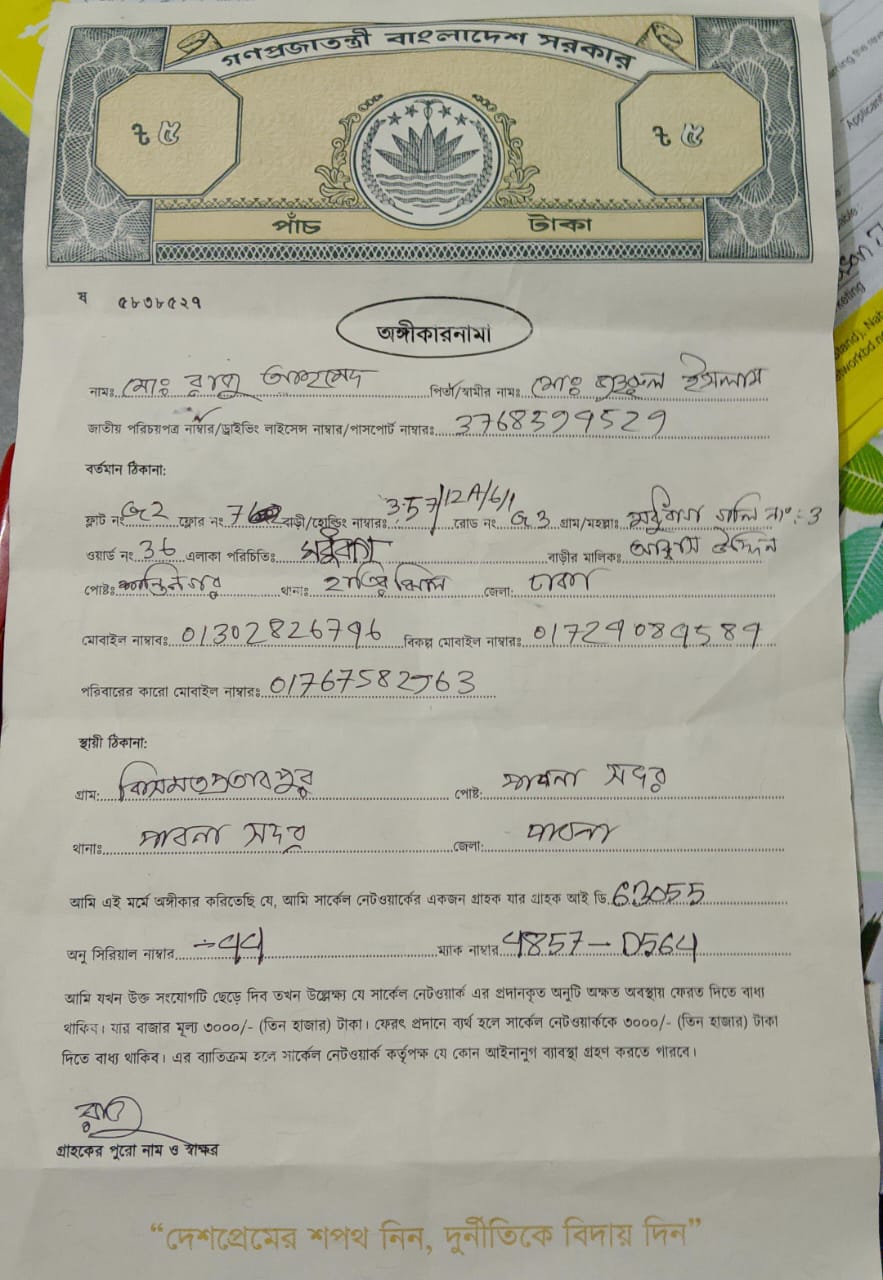 গণপ্রজাতন্ত্রী বাংলাদেশ সরকার
৳ ৫ ৳ ৫
পাঁচ টাকা
ষ ৫৮৩৮৫২৭
অঙ্গীকারনামা
নামঃ মোঃ রাজু আহমেদ পিতা/স্বামীর নামঃ মোঃ ইসলাম
জাতীয় পরিচয়পত্র নাম্বার/ড্রাইভিং লাইসেন্স নাম্বার/পাসপোর্ট নাম্বারঃ
বর্তমান ঠিকানা:
ফ্লাট নং ফ্লোর নং বাড়ী/হোল্ডিং নাম্বারঃ 357/12A/6/1 রোড নং গ্রাম/মহল্লাঃ মধুবাগ গলি নং: 3
ওয়ার্ড নং 36 এলাকা পরিচিতিঃ মধুবাগ বাড়ীর মালিকঃ উদ্দিন
পোষ্টঃ শান্তিনগর থানাঃ হাতিরঝিল জেলা: ঢাকা
মোবাইল নাম্বারঃ 01302826796 বিকল্প মোবাইল নাম্বারঃ
পরিবারের কারো মোবাইল নাম্বারঃ
স্থায়ী ঠিকানা:
গ্রাম: কিসমতপ্রতাবপুর পোষ্ট: পাবনা সদর
থানাঃ পাবনা সদর জেলা: পাবনা
আমি এই মর্মে অঙ্গীকার করিতেছি যে, আমি সার্কেল নেটওয়ার্কের একজন গ্রাহক যার গ্রাহক আই ডি. 63055
অনু সিরিয়াল নাম্বার ম্যাক নাম্বার 4857-D564
আমি যখন উক্ত সংযোগটি ছেড়ে দিব তখন উল্লেক্ষ্য যে সার্কেল নেটওয়ার্ক এর প্রদানকৃত অনুটি অক্ষত অবস্থায় ফেরত দিতে বাধ্য
থাকিব। যার বাজার মূল্য ৩০০০/- (তিন হাজার) টাকা। ফেরৎ প্রদানে ব্যর্থ হলে সার্কেল নেটওয়ার্ককে ৩০০০/- (তিন হাজার) টাকা
দিতে বাধ্য থাকিব। এর ব্যাতিক্রম হলে সার্কেল নেটওয়ার্ক কর্তৃপক্ষ যে কোন আইনানুগ ব্যাবস্থা গ্রহণ করতে পারবে।
গ্রাহকের পুরো নাম ও স্বাক্ষর
“দেশপ্রেমের শপথ নিন, দুর্নীতিকে বিদায় দিন”